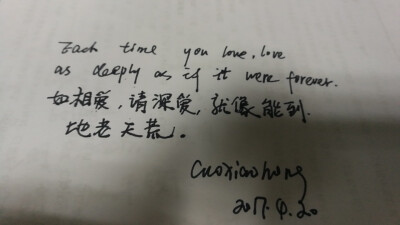 Each time you love, love
as deeply as if it were forever.
如相爱，请深爱，就像能到
地老天荒。
Cuoxiaohong
2017.9.20